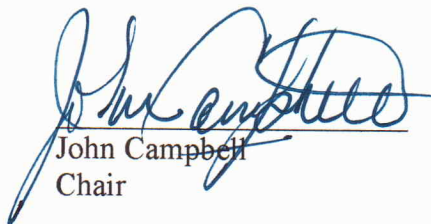 John Campbell
John Campbell
Chair